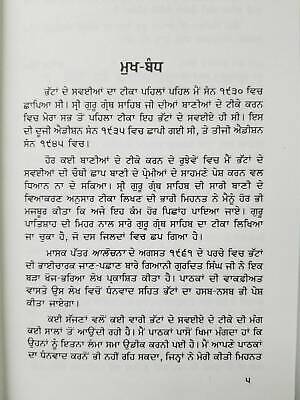 ਮੁਖ-ਬੰਧ
ਭੱਟਾਂ ਦੇ ਸਵਈਆਂ ਦਾ ਟੀਕਾ ਪਹਿਲਾਂ ਪਹਿਲ ਮੈਂ ਸੰਨ ੧੯੩੦ ਵਿਚ
ਛਾਪਿਆ ਸੀ। ਸ੍ਰੀ ਗੁਰੂ ਗ੍ਰੰਥ ਸਾਹਿਬ ਜੀ ਦੀਆਂ ਬਾਣੀਆਂ ਦੇ ਟੀਕੇ ਕਰਨ
ਵਿਚ ਮੇਰਾ ਸਭ ਤੋਂ ਪਹਿਲਾਂ ਹਥਲਾ ਇਹ ਭੱਟਾਂ ਦੇ ਸਵਈਏ ਹੀ ਸੀ। ਇਸ
ਦੀ ਦੂਜੀ ਐਡੀਸ਼ਨ ਸੰਨ ੧੯੩੫ ਵਿਚ ਛਾਪੀ ਗਈ ਸੀ, ਤੇ ਤੀਜੀ ਐਡੀਸ਼ਨ
੧੯੪੫ ਵਿਚ।
ਹੋਰ ਕਈ ਬਾਣੀਆਂ ਦੇ ਟੀਕੇ ਕਰਨ ਦੇ ਰੁਝੇਵੇਂ ਵਿਚ ਮੈਂ ਭੱਟਾਂ ਦੇ
ਸਵਈਏ ਦੀ ਚੌਥੀ ਛਾਪ ਬਾਣੀ ਦੇ ਪ੍ਰੇਮੀਆਂ ਦੇ ਸਾਹਮਣੇ ਪੇਸ਼ ਕਰਨ ਵਲ
ਧਿਆਨ ਨਾ ਦੇ ਸਕਿਆ। ਸ੍ਰੀ ਗੁਰੂ ਗ੍ਰੰਥ ਸਾਹਿਬ ਦੀ ਸਾਰੀ ਬਾਣੀ ਦੇ
ਵਿਆਕਰਣ ਅਨੁਸਾਰ ਟੀਕਾ ਲਿਖਣ ਦੀ ਭਾਰੀ ਮਿਹਨਤ ਨੇ ਮੈਨੂੰ ਹੋਰ ਭੀ
ਮਜਬੂਰ ਕੀਤਾ ਕਿ ਅਜੇ ਇਹ ਕੰਮ ਹੋਰ ਪਿਛਾਂਹ ਪਾਇਆ ਜਾਏ। ਗੁਰੂ
ਪਾਤਿਸ਼ਾਹ ਦੀ ਮਿਹਰ ਨਾਲ ਸਾਰੇ ਗੁਰੂ ਗ੍ਰੰਥ ਸਾਹਿਬ ਦਾ ਟੀਕਾ ਲਿਖਿਆ
ਜਾ ਚੁਕਾ ਹੈ, ਜੋ ਦਸ ਜਿਲਦਾਂ ਵਿਚ ਛਪ ਗਿਆ ਹੈ।
ਮਾਸਕ ਪੱਤਰ ਆਲੋਚਨਾ ਦੇ ਅਗਸਤ ੧੯੬੧ ਦੇ ਪਰਚੇ ਵਿਚ ਭੱਟਾਂ
ਦੀ ਭਾਈਚਾਰਕ ਜਾਣ-ਪਛਾਣ ਬਾਰੇ ਗਿਆਨੀ ਗੁਰਦਿਤ ਸਿੰਘ ਜੀ ਨੇ ਇਕ
ਬੜਾ ਖੋਜ-ਭਰਿਆ ਲੇਖ ਪ੍ਰਕਾਸ਼ਿਤ ਕੀਤਾ ਹੈ। ਪਾਠਕਾਂ ਦੀ ਵਾਕਫੀਅਤ
ਵਾਸਤੇ ਉਸ ਲੇਖ ਵਿਚੋਂ ਧੰਨਵਾਦ ਸਹਿਤ ਭੱਟਾਂ ਦਾ ਹਸਬ-ਨਸਬ ਭੀ ਪੇਸ਼
ਕੀਤਾ ਜਾਏਗਾ।
ਕਈ ਸੱਜਣਾਂ ਵਲੋਂ ਕਈ ਵਾਰੀ ਭੱਟਾਂ ਦੇ ਸਵਈਏ ਦੇ ਟੀਕੇ ਦੀ ਮੰਗ
ਕਈ ਸਾਲਾਂ ਤੋਂ ਆਉਂਦੀ ਰਹੀ ਹੈ। ਮੈਂ ਪਾਠਕਾਂ ਪਾਸੋਂ ਖਿਮਾ ਮੰਗਦਾ ਹਾਂ ਕਿ
ਉਹਨਾਂ ਨੂੰ ਇਤਨਾ ਲੰਮਾ ਸਮਾ ਉਡੀਕ ਕਰਨੀ ਪਈ ਹੈ। ਮੈਂ ਆਪਣੇ ਪਾਠਕਾਂ
ਦਾ ਧੰਨਵਾਦ ਕਰਨੋਂ ਭੀ ਨਹੀਂ ਰਹਿ ਸਕਦਾ, ਜਿਨ੍ਹਾਂ ਨੇ ਮੇਰੀ ਕੀਤੀ ਮਿਹਨਤ
੫